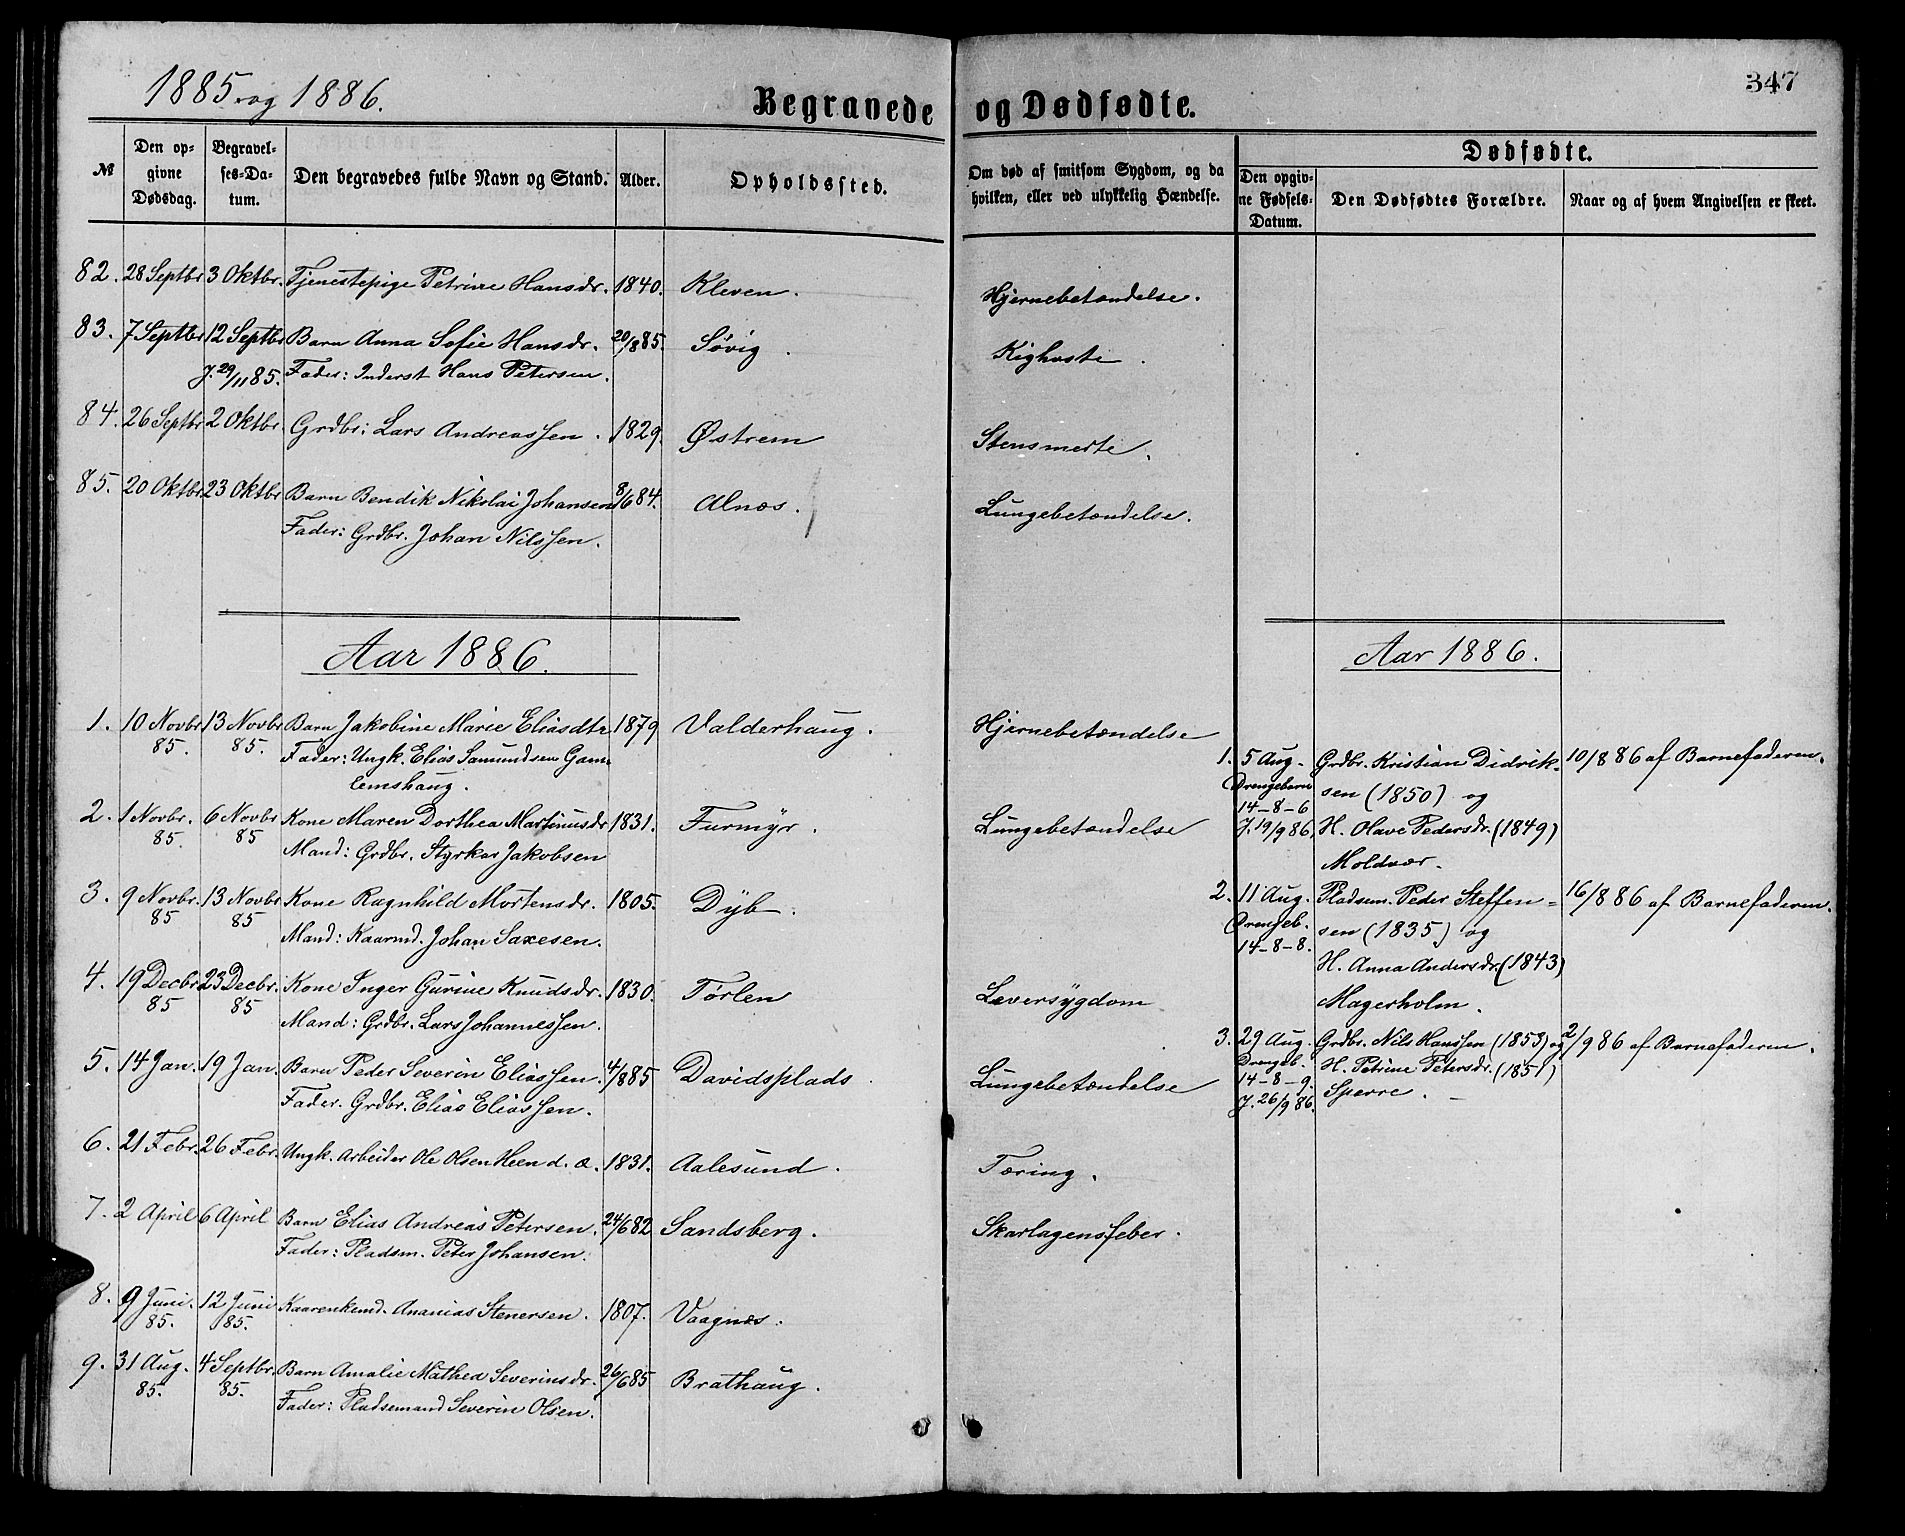 1885 og 1886.
347
Begravede og Dødfødte.
№
Den opgivne Dødsdag.
Begravelses-Datum.
Den begravedes fulde Navn og Stand.
Alder.
Opholdssted.
Om død af smitsom Sygdom, og da hvilken, eller ved ulykkelig Hændelse.
Dødfødte.
Den opgivne Fødsels-Datum.
Den Dødfødtes Forældre.
Naar og af hvem Angivelsen er skeet.
82. 28 Septbr 3 Oktbr. Tjenestepige Petrine Hansdr. 1840. Kleven. Hjernebetændelse.
83. 7 Septbr 12 Septbr Barn Anna Sofie Hansdr. 20/885. Søvig. Kighoste.
J. 29/11 85. Fader: Inderst Hans Petersen.
84. 26 Septbr 2 Oktbr. Grdbr: Lars Andreassen. 1829. Østrem Stensmerte.
85. 20 Oktbr 23 Oktbr Barn Bendik Nikolai Johansen 8/684. Alnæs. Lungebetændelse.
Fader: Grdbr. Johan Nilssen.
Aar 1886.
1. 10 Novbr 13 Novbr Barn Jakobine Marie Eliasdtr 1879 Valderhaug. Hjernebetændelse
85. 85. Fader: Ungk. Elias Samundsen Gam-
lemshaug.
2. 1 Novbr. 6 Novbr Kone Maren Dorthea Martinusdr 1831. Furmyr. Lungebetændelse
85. 85 Mand: Grdbr. Styrkar Jakobsen
3. 9 Novbr. 13 Novbr Kone Ragnhild Mortensdr. 1805. Dyb.
85 85 Mand: Kaarmd. Johan Saxesen.
4. 19 Decbr 23 Decbr. Kone Inger Gurine Knudsdr. 1830. Tørlen Leversygdom
85 85 Mand: Grdbr. Lars Johannessen.
5. 14 Jan. 19 Jan. Barn Peder Severin Eliassen. 4/885 Davidsplads. Lungebetændelse
Fader. Grdbr. Elias Eliassen.
6. 21 Febr. 26 Febr. Ungk. Arbeider Ole Olsen Heen d. æ. 1831. Aalesund. Tæring.
7. 2 April 6 April Barn Elias Andreas Petersen. 24/682 Sandsberg. Skarlagensfeber.
Fader: Pladsm. Peter Johansen.
8. 9 Juni. 12 Juni Kaarenkemd. Ananias Stenersen. 1807. Vaagnæs.
85. 85.
9. 31 Aug. 4 Septbr. Barn Amalie Mathea Severinsdr. 26/685 Brathaug.
85. 85. Fader: Pladsemand Severin Olsen.
Aar 1886.
1. 5 Aug. Grdbr. Kristian Didrik- 10/886 af Barnefaderen.
Drengebarn sen (1850) og
14-8-6
J. 19/9 86. H. Olave Pedersdr. (1849)
Moldvær.
2. 11 Aug. Pladsem. Peder Steffen- 16/886 af Barnefaderen.
Drengeb. sen (1835) og
14-8-8. H. Anna Andersdr. (1843)
Magerholm.
3. 29 Aug. Grdbr. Nils Hanssen (1853) og 2/986 af Barnefaderen.
Drengeb. H. Petrine Petersdr. (1851)
14-8-9. Sperre.
J. 26/9 86.